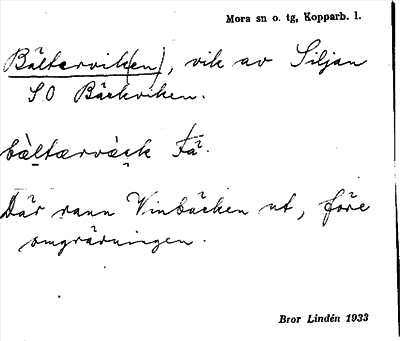 Mora sn o. tg, Kopparb. l.
Bältervik(en), vik av Siljan
S.O Bäckviken.
bæ̀ltærvæ̀ck
Där rann Vinbäcken ut, före
omgrävningen.
Bror Lindén 1933